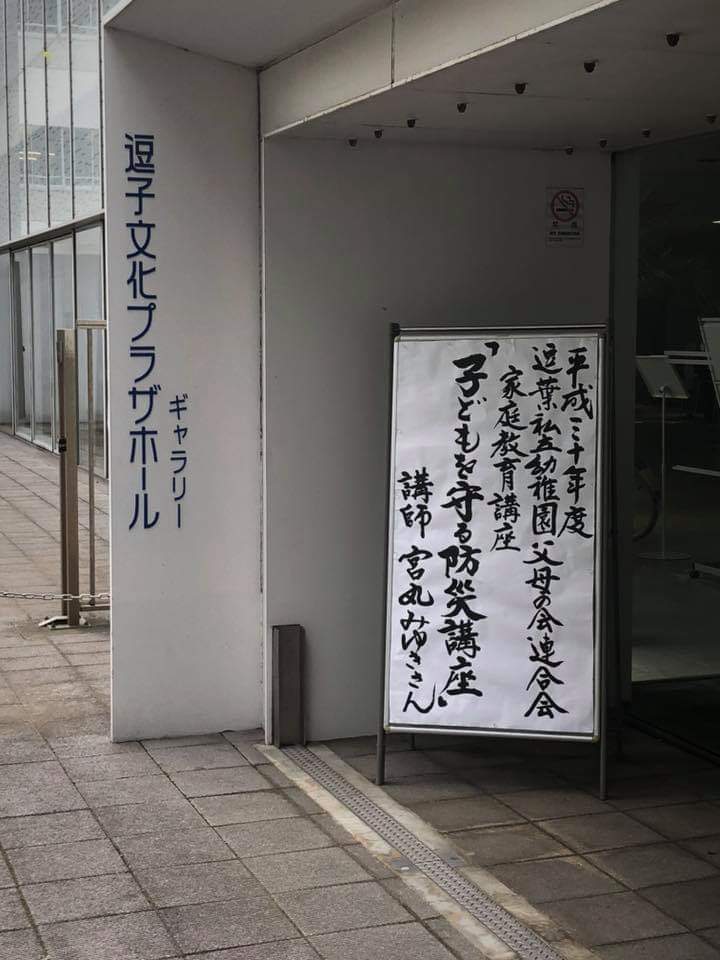 逗子文化プラザホール
ギャラリー
平成三十年度
逗葉私立幼稚園父母の会連合会
家庭教育講座
「子どもを守る防災講座」
講師 宮丸みゆきさん
禁煙